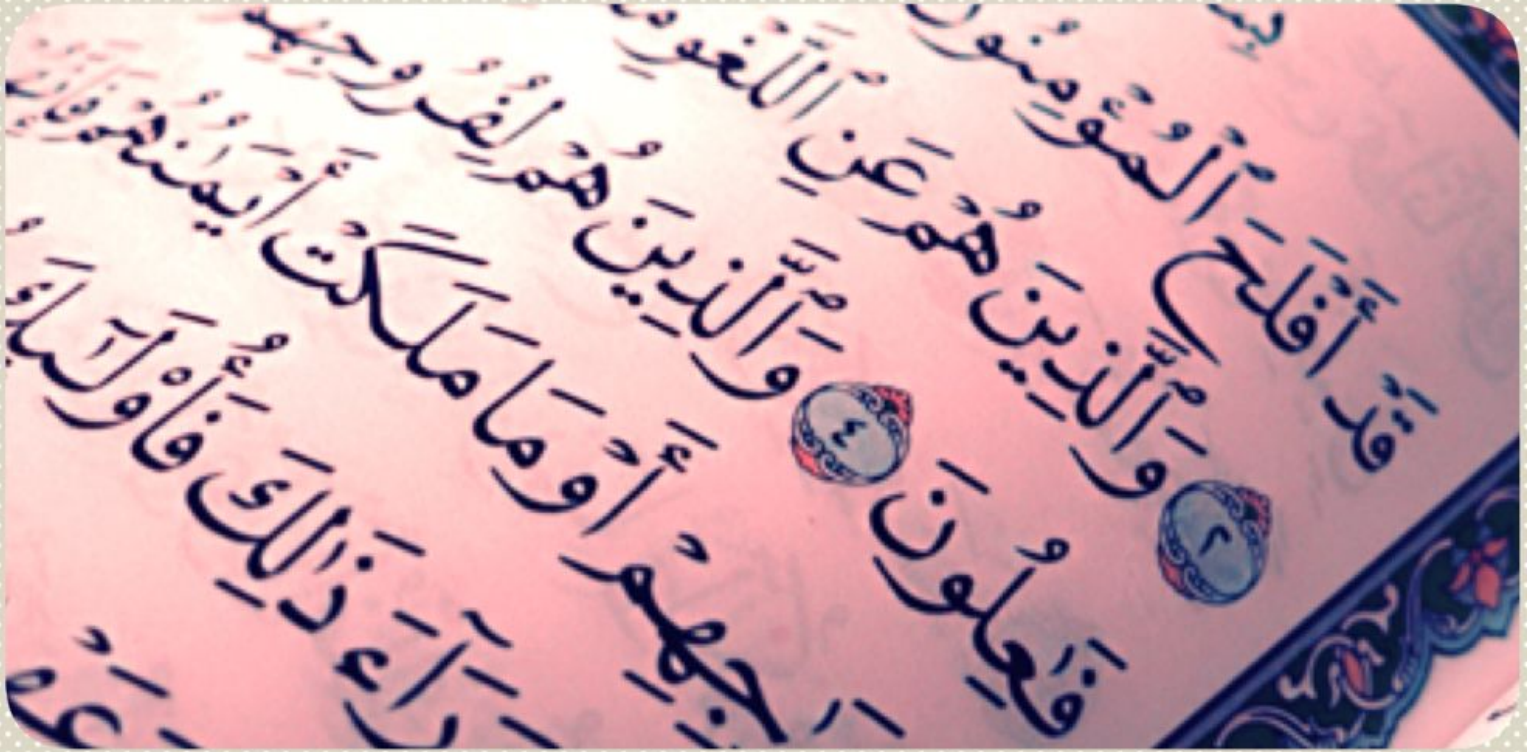 قَدْ أَفْلَحَ ٱلْمُؤْمِنُونَ
٢ وَٱلَّذِينَ هُمْ عَنِ ٱللَّغْوِ
فَٰعِلُونَ ٤ وَٱلَّذِينَ هُمْ لِفُرُوجِهِمْ
أَوْ مَا مَلَكَتْ أَيْمَٰنُهُمْ
ذَٰلِكَ فَأُو۟لَٰٓئِكَ